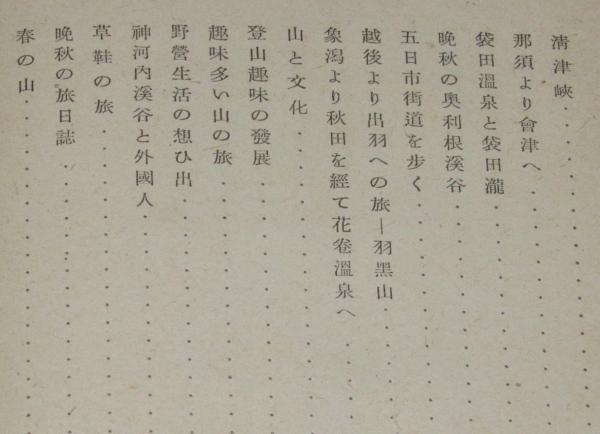 清津峽
那須より會津へ
袋田溫泉と袋田瀧
晩秋の奥利根溪谷
五日市街道を步く
越後より出羽への旅―羽黑山
象潟より秋田を經て花卷溫泉へ
山と文化
登山趣味の發展
趣味多い山の旅
野營生活の想ひ出
神河內溪谷と外國人
草鞋の旅
晩秋の旅日誌
春の山